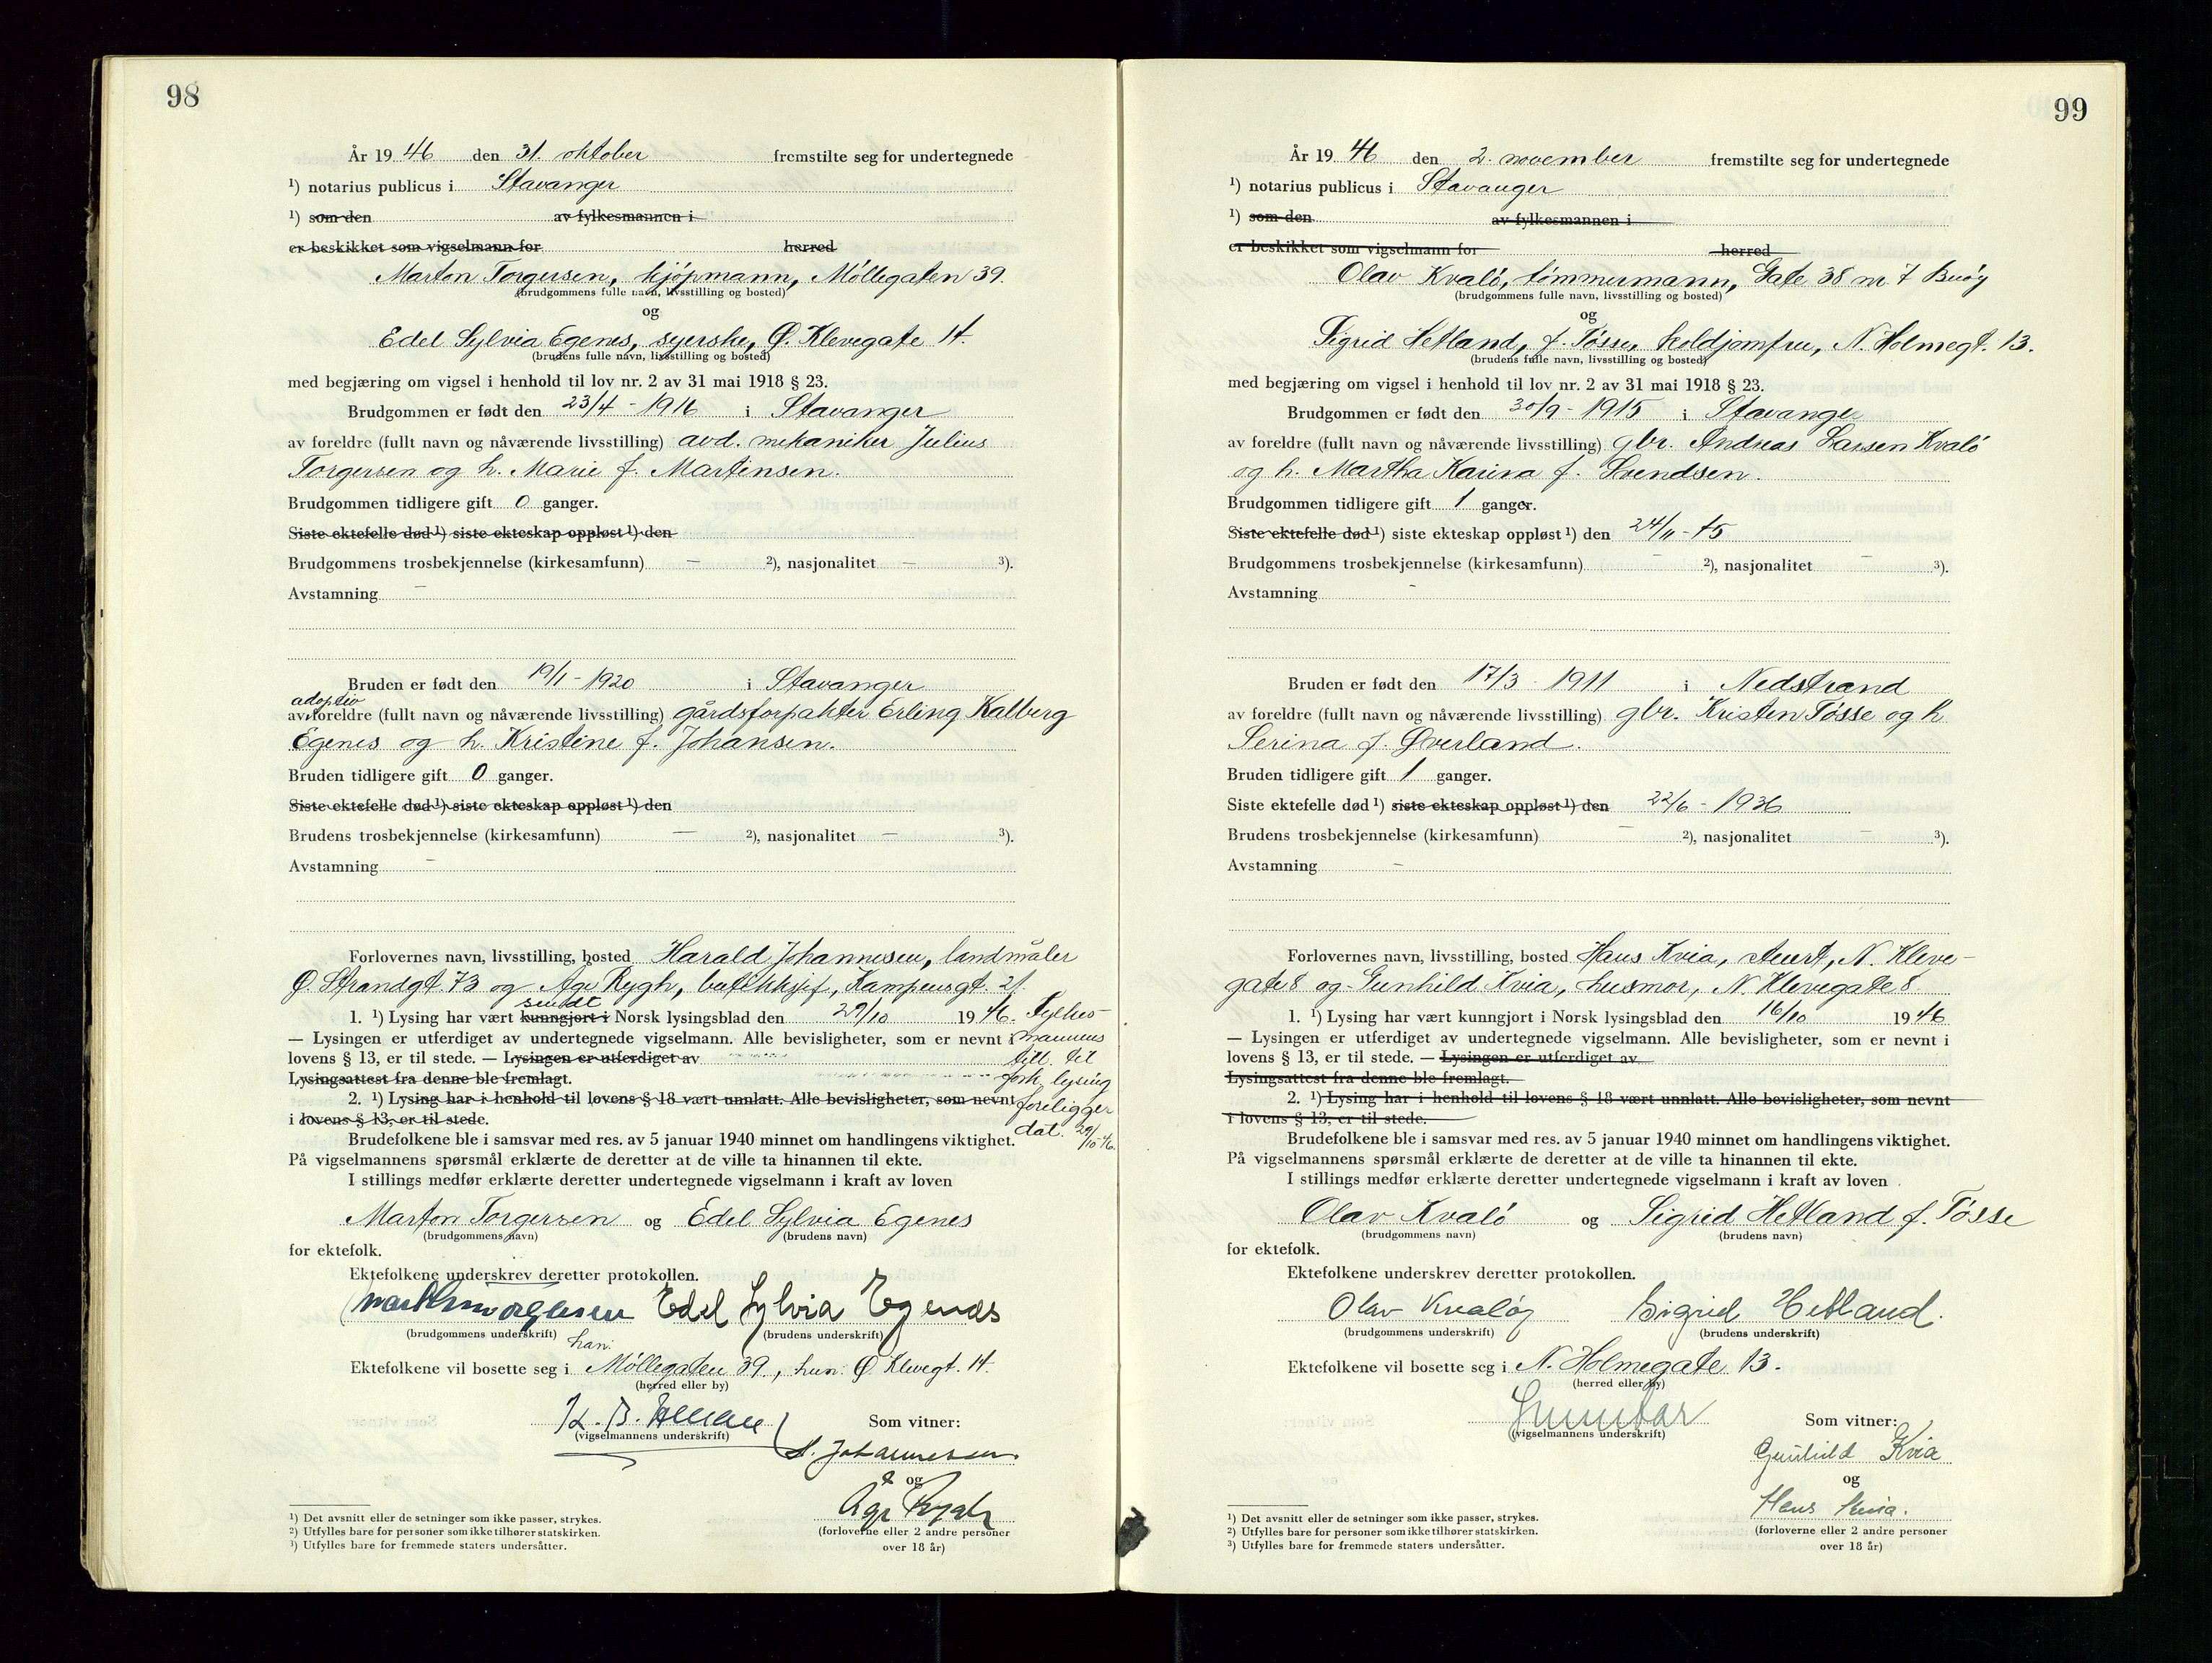 98
År 1946 den 31. oktober fremstilte seg for undertegnede
¹) notarius publicus i Stavanger
¹) som den av fylkesmannen i
er beskikket som vigselmann for herred
Marton Torgersen, kjøpmann, Møllegaten 39.
(brudgommens fulle navn, livsstilling og bosted)
og
Edel Sylvia Egenes, syerske, Ø. Klevegate 14.
(brudens fulle navn, livsstilling og bosted)
med begjæring om vigsel i henhold til lov nr. 2 av 31 mai 1918 § 23.
Brudgommen er født den 23/4 - 1916 i Stavanger
av foreldre (fullt navn og nåværende livsstilling) avd. mekaniker Julius
Torgersen og h. Marie f. Martinsen.
Brudgommen tidligere gift 0 ganger.
Siste ektefelle død ¹) siste ekteskap oppløst ¹) den
Brudgommens trosbekjennelse (kirkesamfunn) — ²), nasjonalitet — ³).
Avstamning —
Bruden er født den 19/1 - 1920 i Stavanger
adoptiv
av foreldre (fullt navn og nåværende livsstilling) gårdsforpakter Erling Kalberg
Egenes og h. Kristine f. Johansen.
Bruden tidligere gift 0 ganger.
Siste ektefelle død ¹) siste ekteskap oppløst ¹) den
Brudens trosbekjennelse (kirkesamfunn) — ²), nasjonalitet — ³).
Avstamning —
Forlovernes navn, livsstilling, bosted Harald Johannesen, landmåler
Ø. Strandgt. 73 og Åge Rygh, Kampensgt. 21.
sendt
1. ¹) Lysing har vært kunngjort i Norsk lysingsblad den 29/10 1946. Fylkes-
— Lysingen er utferdiget av undertegnede vigselmann. Alle bevisligheter, som er nevnt i mannens
lovens § 13, er til stede. — Lysingen er utferdiget av till. til
Lysingsattest fra denne ble fremlagt. fork. lysing
2. ¹) Lysing har i henhold til lovens § 18 vært unnlatt. Alle bevisligheter, som nevnt foreligger
i lovens § 13, er til stede. dat. 29/10-46.
Brudefolkene ble i samsvar med res. av 5 januar 1940 minnet om handlingens viktighet.
På vigselmannens spørsmål erklærte de deretter at de ville ta hinannen til ekte.
I stillings medfør erklærte deretter undertegnede vigselmann i kraft av loven
Marton Torgersen og Edel Sylvia Egenes
(brudgommens navn) (brudens navn)
for ektefolk.
Ektefolkene underskrev deretter protokollen.
Marton Torgersen Edel Sylvia Egenes
(brudgommens underskrift) (brudens underskrift)
han:
Ektefolkene vil bosette seg i Møllegaten 39., hun: Ø. Klevegt. 14.
(herred eller by)
Som vitner:
(vigselmannens underskrift)
H. Johannesen
og
Åge Rygh
(forloverne eller 2 andre personer
over 18 år)
¹) Det avsnitt eller de setninger som ikke passer, strykes.
²) Utfylles bare for personer som ikke tilhører statskirken.
³) Utfylles bare for fremmede staters undersåtter.
99
År 1946 den 2. november fremstilte seg for undertegnede
¹) notarius publicus i Stavanger
¹) som den av fylkesmannen i
er beskikket som vigselmann for herred
Olav Kvalö, tømmermann, Gate 38 nr. 7 Buøy
(brudgommens fulle navn, livsstilling og bosted)
og
Sigrid Hetland, f. Tøsse, koldjomfru, N. Holmegt. 13.
(brudens fulle navn, livsstilling og bosted)
med begjæring om vigsel i henhold til lov nr. 2 av 31 mai 1918 § 23.
Brudgommen er født den 30/9 - 1915 i Stavanger
av foreldre (fullt navn og nåværende livsstilling) gbr. Andreas Larsen Kvalö
og h. Martha Karina f. Svendsen.
Brudgommen tidligere gift 1 ganger.
Siste ektefelle død ¹) siste ekteskap oppløst ¹) den 24/11 - 45
Brudgommens trosbekjennelse (kirkesamfunn) — ²), nasjonalitet — ³).
Avstamning —
Bruden er født den 17/3 - 1911 i Nedstrand
av foreldre (fullt navn og nåværende livsstilling) gbr. Kristen Tøsse og h.
Serina f. Øverland.
Bruden tidligere gift 1 ganger.
Siste ektefelle død ¹) siste ekteskap oppløst ¹) den 22/6 - 1936
Brudens trosbekjennelse (kirkesamfunn) — ²), nasjonalitet — ³).
Avstamning —
Forlovernes navn, livsstilling, bosted Hans Kvia, stuert, N. Kleve-
gate 8 og Gunhild Kvia, husmor, N. Klevegate 8.
1. ¹) Lysing har vært kunngjort i Norsk lysingsblad den 16/10 1946
— Lysingen er utferdiget av undertegnede vigselmann. Alle bevisligheter, som er nevnt i
lovens § 13, er til stede. — Lysingen er utferdiget av
Lysingsattest fra denne ble fremlagt.
2. ¹) Lysing har i henhold til lovens § 18 vært unnlatt. Alle bevisligheter, som nevnt
i lovens § 13, er til stede.
Brudefolkene ble i samsvar med res. av 5 januar 1940 minnet om handlingens viktighet.
På vigselmannens spørsmål erklærte de deretter at de ville ta hinannen til ekte.
I stillings medfør erklærte deretter undertegnede vigselmann i kraft av loven
Olav Kvalö og Sigrid Hetland f. Tøsse
(brudgommens navn) (brudens navn)
for ektefolk.
Ektefolkene underskrev deretter protokollen.
Olav Kvaløy Sigrid Hetland.
(brudgommens underskrift) (brudens underskrift)
Ektefolkene vil bosette seg i N. Holmegate 13.
(herred eller by)
Som vitner:
(vigselmannens underskrift)
Gunhild Kvia
og
Hans Kvia.
(forloverne eller 2 andre personer
over 18 år)
¹) Det avsnitt eller de setninger som ikke passer, strykes.
²) Utfylles bare for personer som ikke tilhører statskirken.
³) Utfylles bare for fremmede staters undersåtter.